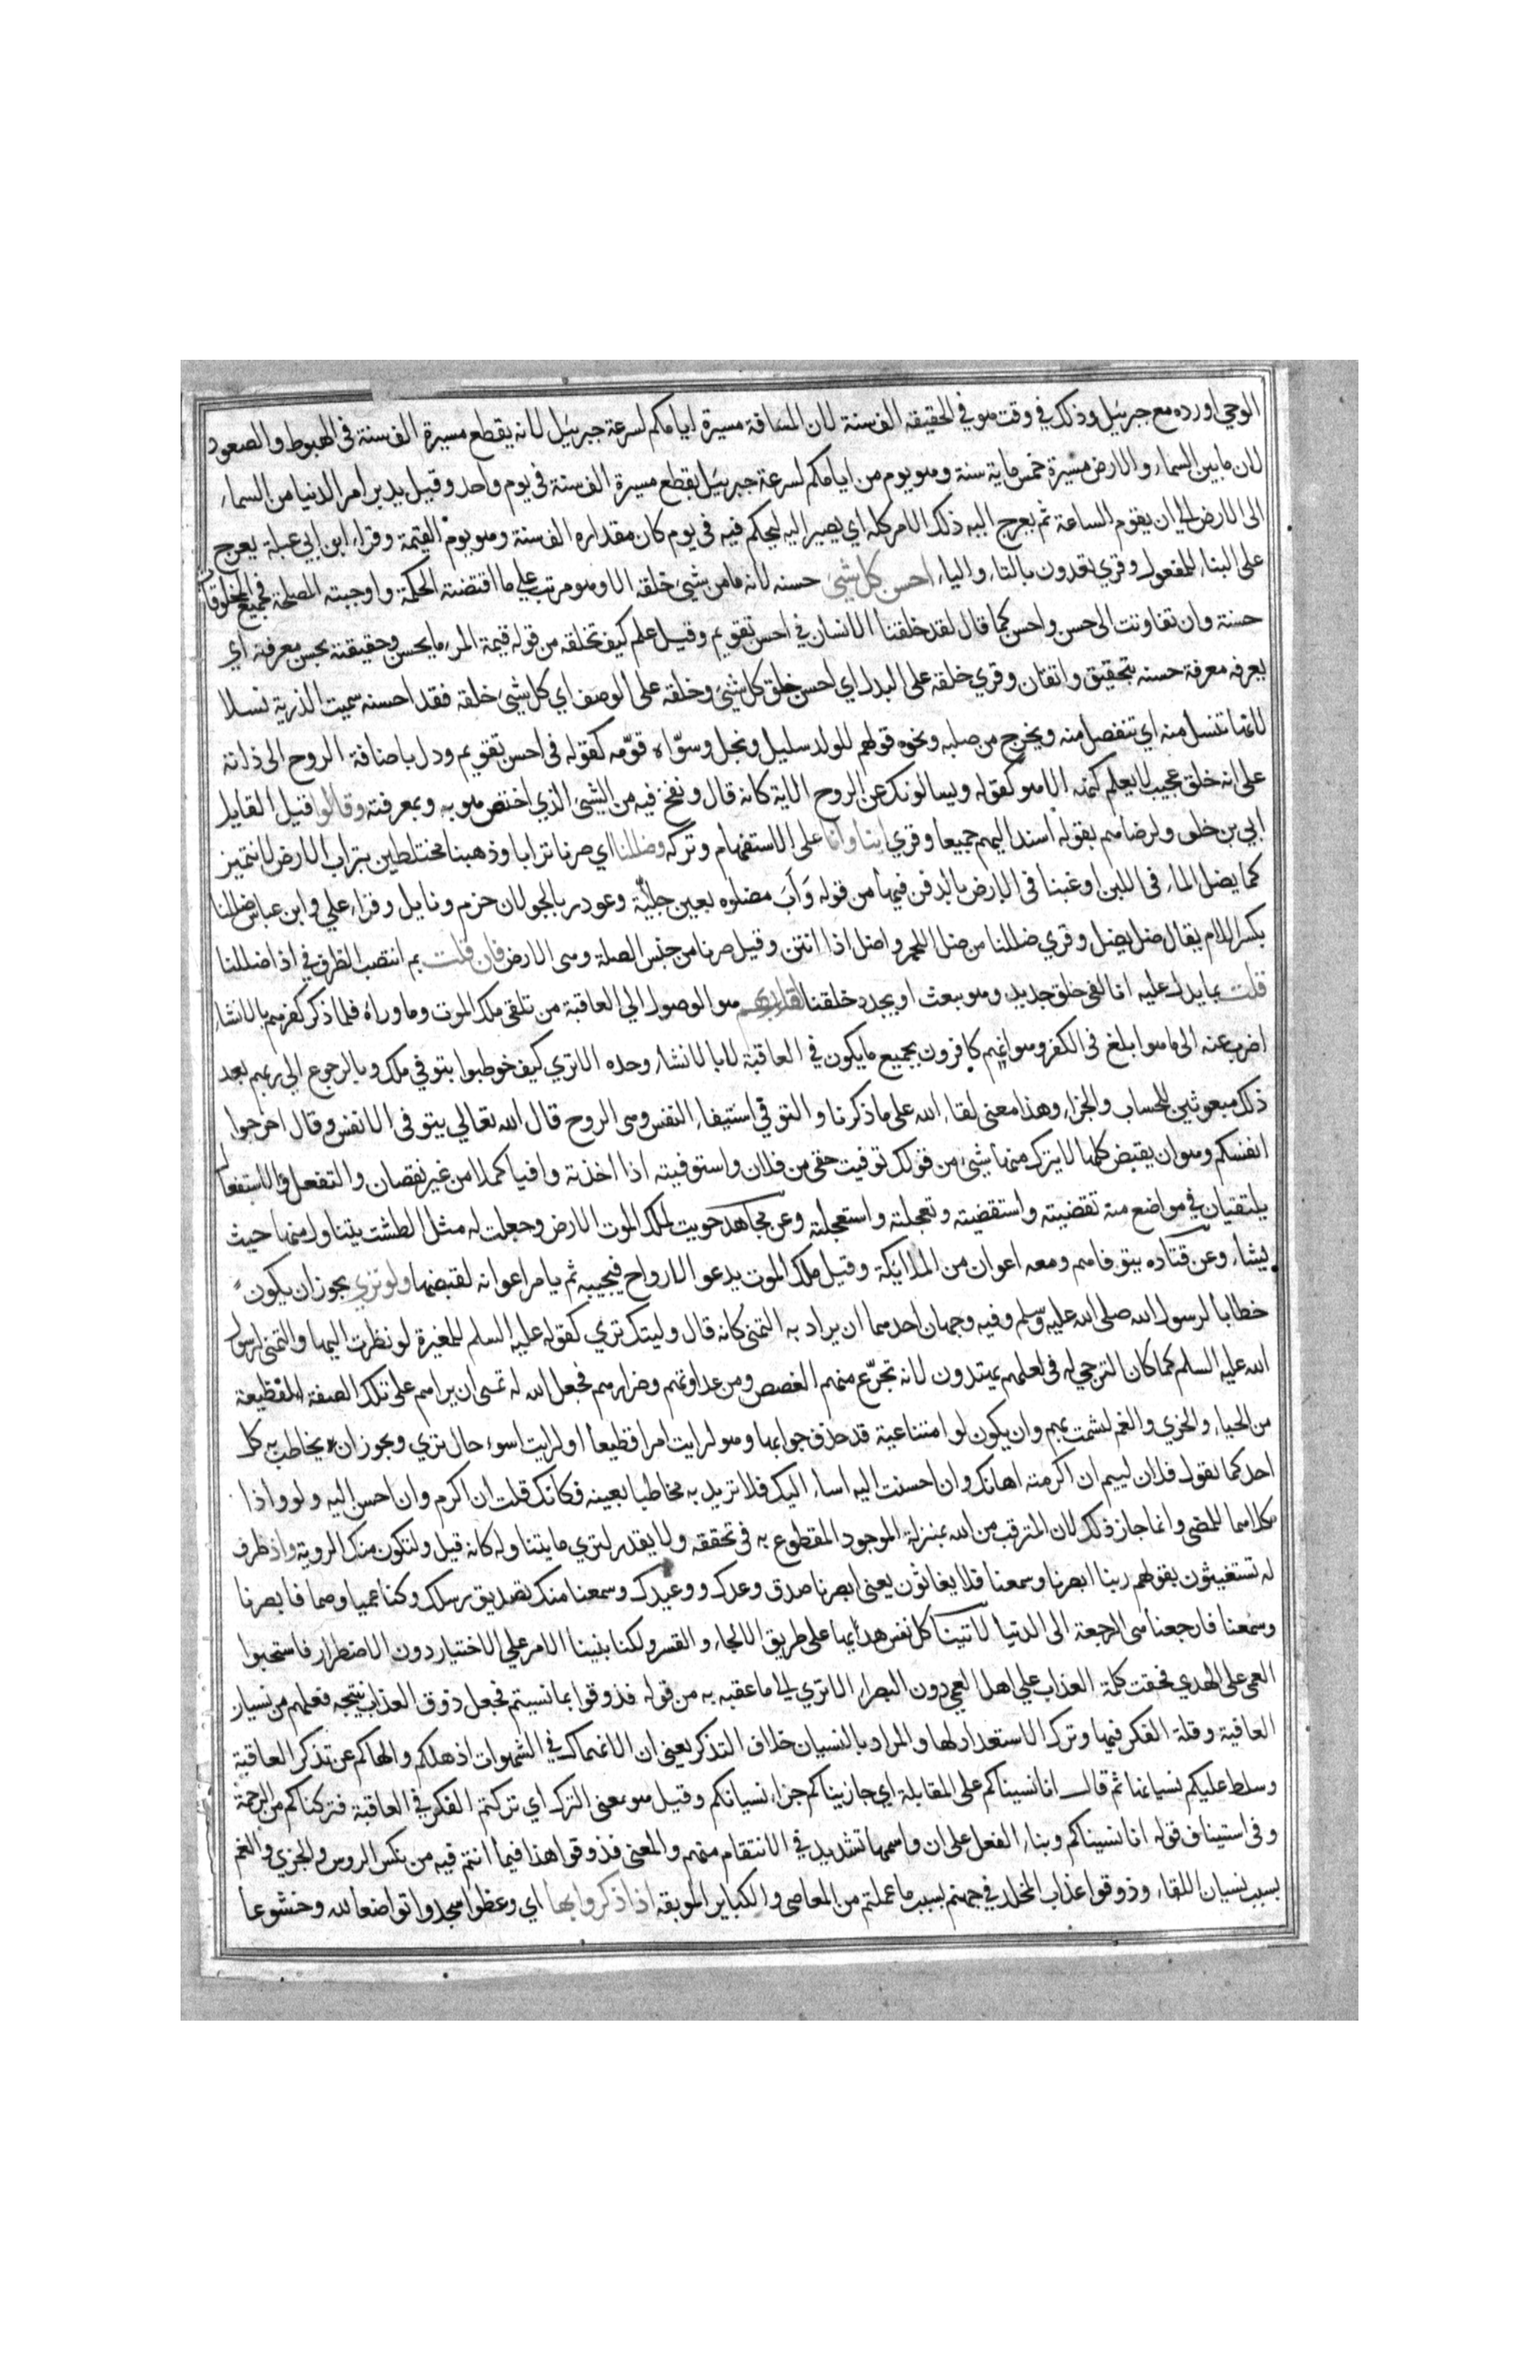 الوحي اورده مع جبرئيل وذلك في وقت هو في الحقيقه الف سنة لان المسافة مسيرة اياماكم لسرعة جبرئيل لانه يقطع مسيرة الف سنة فى الهبوط والصعود
لان ما بين السماء والارض مسيرة خمس ماية سنة وهو يوم من ايامكم لسرعة جبرئيل يقطع مسيرة الف سنة فى يوم واحد وقيل يدبر امر الدنيا من السماء
الى الارض الي ان يقوم الساعة ثم يعرج اليه ذلك الامر كله اي يصير اليه ليحكم فيه فى يوم كان مقداره الف سنة وهو يوم القيمة وقراء ابن ابي عبلة يعرج
على البناء للمفعول وقري تعدون بالتاء والياء احسن كل شئ حسنه لانه ما من شئ خلقه الا وهو مرتب علي ما اقتضته الحكمة واوجبته المصلحة فجميع المخلوقات
حسنة وان تفاوتت الى حسن واحسن كما قال لقد خلقنا الانسان في احسن تقويم وقيل علم كيف تخلقه من قوله قيمة المرء ما يحسن وحقيقته يحسن معرفته اي
يعرفه معرفة حسنه بتحقيق واتقان وقري خلقه على البدل اي احسن خلق كل شئ وخلقه على الوصف اي كل شئ خلقه فقد احسنه سميت الذرية نسلا
لانها تنسل منه اي تنفصل منه ويخرج من صلبه ونحوه قولهم للولد سليل ونجل وسوّاه قوّمه كقوله فى احسن تقويم ودل باضافة الروح الى ذاته
على انه خلق عجيب لا يعلم كنهه الا هو كقوله ويسالونك عن الروح الاية كانه قال ونفخ فيه من الشئ الذي اختص هو به وبمعرفته وقالوا قيل القايل
ابي بن خلف ولرضاهم بقوله اسند اليهم جميعا وقري اينا وانا على الاستفهام وتركه وضللنا اي صرنا ترابا وذهبنا مختلطين بتراب الارض لا نتميز
كما يضل الماء فى اللبن او غبنا فى الارض بالدفن فيها من قوله وَآبَ مضلوه بعين جليّة وغودر بالجولان حزم ونايل وقراء علي وابن عباس ضللنا
بكسر اللام يقال ضل يضل وقري ضللنا من ضل اللحم واضل اذا انتن وقيل صرنا من جنس الصلة وهى الارض فان قلت بم انتصب الظرف في اذا ضللنا
قلت بما يدل عليه انا لفى خلق جديد وهو نبعث او يجدد خلقنا لقاء ربهم هو الوصول الي العاقبة من تلقى ملك الموت وما وراه فلما ذكر كفرهم بالانشاء
اضرب عنه الى ما هو ابلغ فى الكفر وهو انهم كافرون بجميع ما يكون في العاقبة لا بالانشاء وحده الا تري كيف خوطبوا بتوفي ملك وبالرجوع الي ربهم بعد
ذلك مبعوثين للحساب والجزاء وهذا معنى لقاء الله على ما ذكرنا والتوفي استيفاء النفس وهى الروح قال الله تعالي يتوفى الانفس وقال اخرجوا
انفسكم وهو ان يقبض كلها لا يترك منها شئ من قولك توفيت حقى من فلان واستوفيته اذا اخذته وافيا كملا من غير نقصان والتفعل والاستفعال
يلتقيان في مواضع منه تقضيته واستقضيته وتعجلته واستعجلته وعن مجاهد حويت لملك الموت الارض وجعلت له مثل الطشت يتناول منها حيث
يشاء وعن قتاده يتوفاهم ومعه اعوان من الملائكة وقيل ملك الموت يدعو الارواح فيجيبه ثم يامر اعوانه لقبضها ولو تري يجوز ان يكون
خطابا لرسول الله صلى الله عليه وسلم وفيه وجهان احدهما ان يراد به التمنى كانه قال وليتك تري كقوله عليه السلم للمغيرة لو نظرت اليها والتمنى لرسول
الله عليه السلم كما كان الترجي له فى لعلهم يهتدون لانه تجرّع منهم الغصص ومن عداوتهم وضرارهم فجعل الله له تمني ان يراهم على تلك الصفة الفظيعة
من الحياء والخزي والغم لشمت بهم وان يكون لو امتناعية قد حذف جوابها وهو لرايت امرا فظيعا او لرايت اسوء حال تري ويجوز ان يخاطب به كل
احد كما تقول فلان لييم ان اكرمته اهانك وان احسنت اليه اساء اليك فلا تريد به مخاطبا بعينه فكانك قلت ان اكرم وان احسن اليه ولو واذا
كلاهما للمضى وانما جاز ذلك لان المترقب من الله بمنزلة الموجود المقطوع به فى تحققه ولا يقدر لتري ما يتناوله كانه قيل ولتكون منك الروية واذ ظرف
له تستغيثون بقولهم ربنا ابصرنا وسمعنا فلا يغاثون يعنى ابصرنا صدق وعدك ووعيدك وسمعنا منك تصديق رسلك وكنا عميا وصما فابصرنا
وسمعنا فارجعنا هى الرجعة الى الدنيا لاتينا كل نفس هداها على طريق الالجاء والقسر ولكنا بنينا الامر علي الاختيار دون الاضطرار فاستحبوا
العمى على الهدي فحقت كلمة العذاب علي اهل العمى دون البصراء الا تري الي ما عقبه به من قوله فذوقوا بما نسيتم فجعل ذوق العذاب نتيجه فعلهم من نسيان
العاقبة وقلة الفكر فيها وترك الاستعداد لها والمراد بالنسيان خلاف التذكر يعنى ان الانهماك في الشهوات اذهلكم والهاكم عن تذكر العاقبة
وسلط عليكم نسيانها ثم قال انا نسيناكم على المقابلة اي جازيناكم جزاء نسيانكم وقيل هو بمعنى الترك اي تركتم الفكر في العاقبة فتركناكم من الرحمة
وفى استيناف قوله انا نسيناكم وبناء الفعل على ان واسمها تشديد في الانتقام منهم والمعنى فذوقوا هذا فيما انتم فيه من نكس الروس والخزي والغم
بسبب نسيان اللقاء وذوقوا عذاب المخلد في جهنم بسبب ما عملتم من المعاصى والكباير الموبقه اذا ذكروا بها اي وعظوا سجدوا تواضعا لله وخشوعا